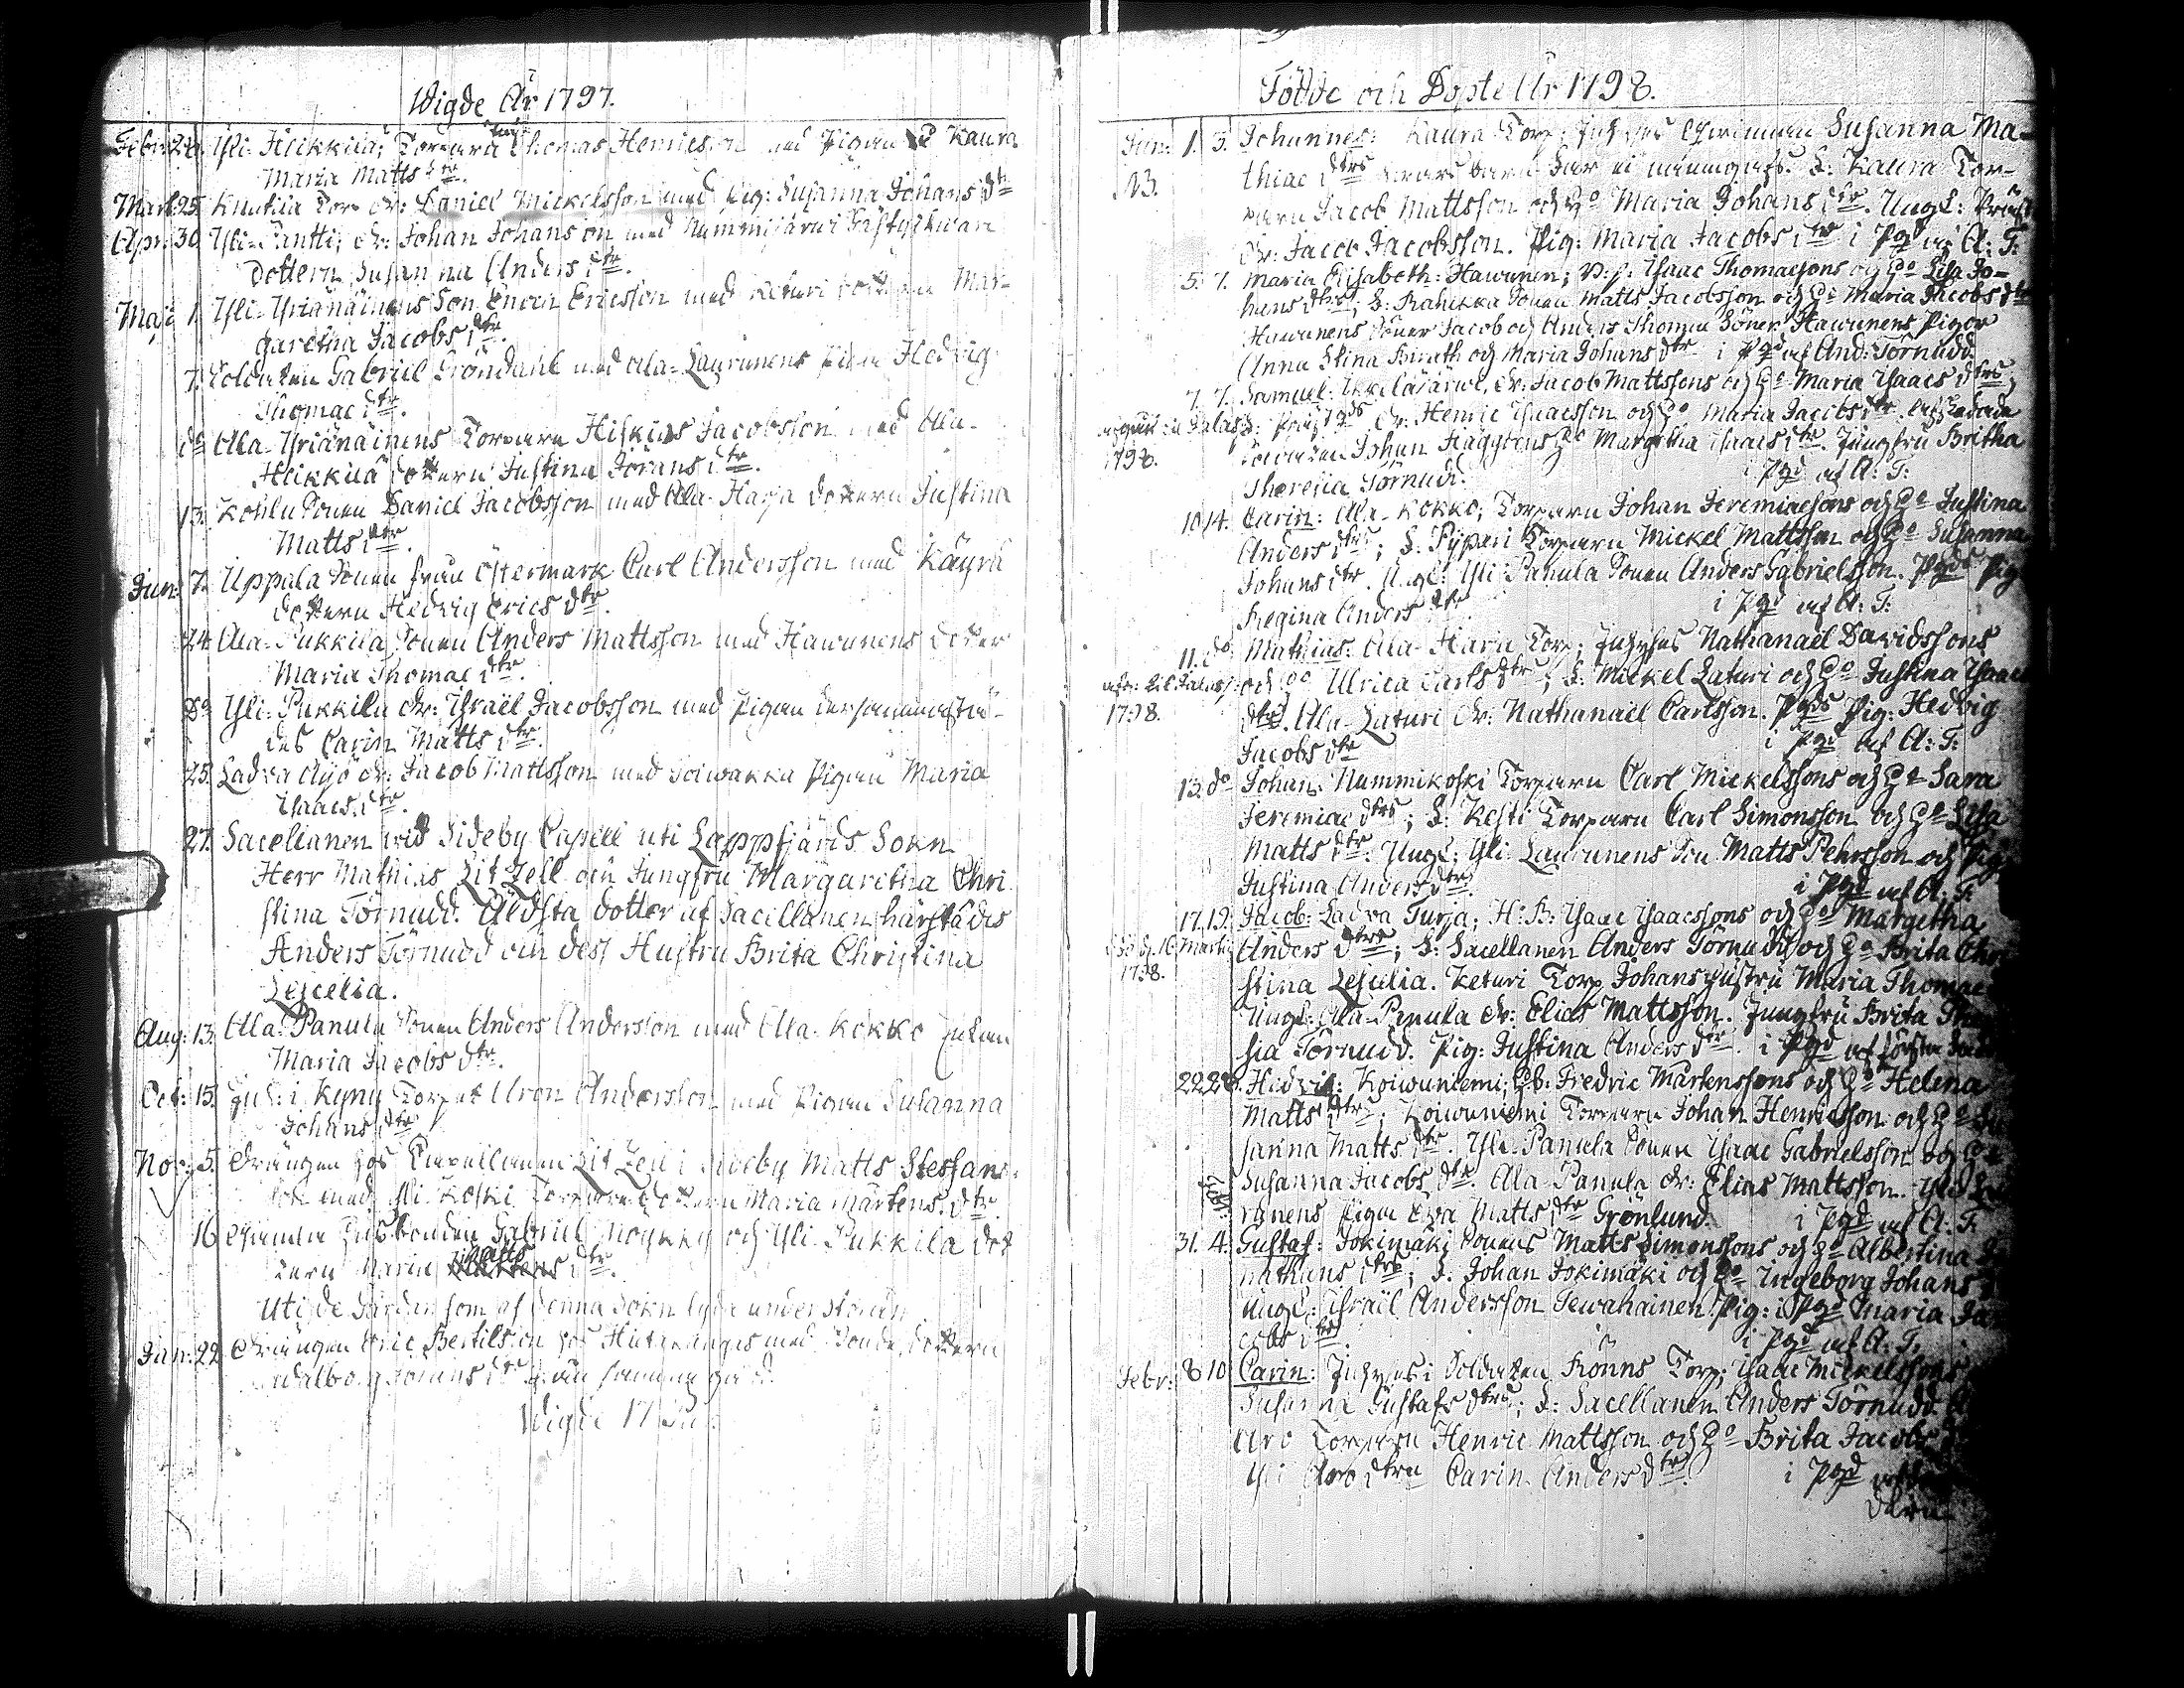 Wigde År 1797.
Febr: 24. Yli-Heikkilä; Torparn Enkl Thomas Henricsson med Pigan Kaura
Maria Matts dtr.
Mart: 25. Knutila Torp dr: Daniel Mickelsson med Pig: Susanna Johans dtr
Apr: 30. Yli-Antti; dr: Johan Johansson med Nummijärwi Gästgifware
dottern Susanna Anders dtr.
Maji 1. Yli-Yrjänäinens Son Enoch Ericsson med Keturi dottern Mar-
garetha Jacobs dtr.
7. Soldaten Gabriel Gröndahl med Ala-Laurunens Pigan Hedvig
Thomae dtr.
do Ala-Yrjänäinens Torparn Hiskias Jacobsson med Ala-
Heikkilä dottern Justina Jörans dtr.
13. Kohlu Sonen Daniel Jacobsson med Ala-Harja dottern Justina
Matts dtr.
Jun: 7. Uppala Sonen från Östermark Carl Andersson med Käyrä
dottern Hedvig Erics dtr.
24. Ala-Pukkila Sonen Anders Mattsson med Hawunens dotter
Maria Thomae dtr.
Do Yli-Pukkila dr: Israël Jacobsson med Pigan dersammastä-
des Carin Matts dtr.
25. Ladwa Aijö dr: Jacob Mattsson med Koiwakka Pigan Maria
Isaacs dtr.
27. Sacellanen wid Sideby Capell uti Lappfjärds Sokn
Herr Mathias Litzell och Jungfru Margaretha Chri
stina Törnudd. Äldsta dotter af Sacellanen härstädes
Anders Törnudd och dess Hustru Brita Christina
Lescelia.
Aug: 13. Ala-Panula Sonen Anders Andersson med Ala-Kokko Enkan
Maria Jacobs dtr.
Oct: 15. Inh: i Kyny Torpet Aron Andersson med Pigan Susanna
Johans dtr
Nov: 5. Drängen hos Capellanen Litzell i Sideby Matts Steffans-
son med Yli-Koski Torpare dottern Maria Mårtens dtr.
16. Husbonden Gabriel och Yli-Pukkila dot
tern Maria Matts dtr.
Uti de Gårdar som af denna Sokn lyda under
Jan: 22. Drängen Eric Bertilsson hos med Bonde dottern
Walborg Jörans dtr från samma gård.
Wigde 17 Par.
Födde och Döpte År 1798.
Jan: 1. 3. Johannes: Kaura Torp: Inhyses Qwinnan Susanna Ma-
NB. thiae dtrs barn Far ej F: Kaura Tor-
parn Jacob Mattsson och Ho Maria Johans dtr. Ung F: Präst
Dr: Jacob Jacobsson. Pig: Maria Jacobs dtr i Pgd af A: T:
5. 7. Maria Elisabeth: Hawunen; N: f: Isaac Thomaesons och Ho Lisa Jo-
hans dtrs; F: Rahikka Sonen Matts Jacobsson och Ho Maria Jacobs dtr
Hawunens Söner Jacob och Anders Thomae Söner Hawunens Pigor
Anna Stina Brath och Maria Johans dtr i Pgd af And: Törnudd
7. 7. Samuel: dr: Jacob Mattssons och Ho Maria Isaacs dtrs;
1798. F: Prästgds Dr: Henric Isaacsson och Ho Maria Jacobs dtr. Afskedade
Soldaten Johan Häggboms Ho Margetha Isaacs dtr. Jungfru Britha
Theresia Törnudd. i Pgd af A: T:
10. 14. Carin: Ala-Kokko; Torparn Johan Jeremiaesons och Ho Justina
Anders dtrs; F: Pypari Torparn Mickel Mattsson och Ho Susanna
Johans dtr. Ung F: Yli-Panula Sonen Anders Gabrielsson. Pgds Pig
Regina Anders dtr i Pgd af A: T:
11. do Mathias: Ala-Harju Torp; Inhyses Nathanaël Davidssons
och Ho Ulrica Carls dtrs; F: Mickel Laturi och Ho Justina Isaacs
1798. dtr. Ala-Laturi Dr: Nathanaël Carlsson. Pgds Pig: Hedvig
Jacobs dtr i Pgd af A: T:
13. do Johan: Nummikoski Torparn Carl Mickelssons och Ho Sara
Jeremiae dtrs; F: Kesti Torparn Carl Simonsson och Ho Lisa
Matts dtr. Ung F: Yli-Laurunens Son Matts Pehrsson och Pig
Justina Anders dtr. i Pgd af A: T:
17. 19. Jacob: Ladwa Turja; H: B: Isaac Isaacssons och Ho Margetha
död d. 16 Martii Anders dtrs; F: Sacellanen Anders Törnudd och Ho Brita Chri
1798. stina Lescelia. Keturi Torp Johans Hustru Maria Thomae
Ung F: Ala-Panula dr: Elias Mattsson. Jungfru Brita There
sia Törnudd. Pig: Justina Anders dtr. i Pgd af
22. 28. Hedvig: Koiwuniemi; Hb: Fredric Mårtenssons och Ho Helena
Matts dtrs; Koiwuniemi Torparn Johan Henricsson och Ho Su
sanna Matts dtr. Yli-Panula Sonen Isaac Gabrielsson och Ho
Susanna Jacobs dtr. Ala-Panula dr: Elias Mattsson. Yli-Lau
runens Pigan Ewa Matts dtr Grönlund. i Pgd af A: T:
31. 4. Gustaf: Jokimäki Sonens Matts Simonssons och Ho Albertina Jo
nathans dtrs; F: Johan Jokimäki och Ho Ingeborg Johans
Ung F: Israël Andersson Tewahainen. Pig: i Pgd Maria Ja
cobs dtr. i Pgd af A: T:
Febr: 8 10 Carin: Inhyses i Soldaten Rönns Torp; Isaac Mickelssons
Susanna Gustafs dtrs; F: Sacellanen Anders Törnudd
Aro Torparn Henric Mattsson och Ho Brita Jacobs
Yli-Aro dtrn Carin Anders dtr. i Pgd af